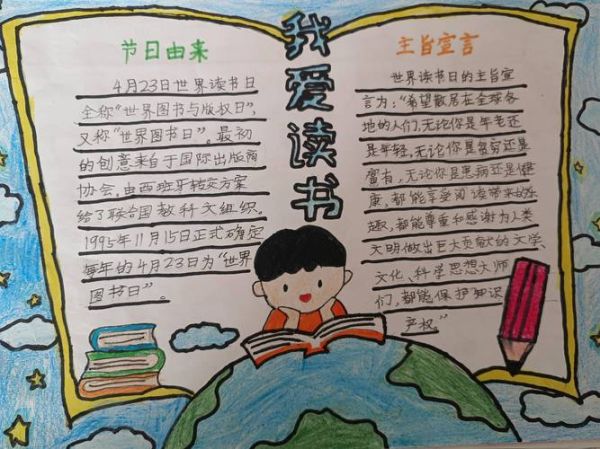 我爱读书
节日由来
4月23日世界读书日
全称“世界图书与版权日”,
又称“世界图书日”。最初
的创意来自于国际出版商
协会。由西班牙转交方案
给了联合国教科文组织。
1995年11月15日正式确定
每年的4月23日为“世界
图书日”。
主旨宣言
世界读书日的主旨宣
言为:“希望散居在全球各
地的人们,无论你是年老还
是年轻,无论你是贫穷还是
富有,无论你是患病还是健
康,都能享受阅读带来的乐
趣,都能尊重和感谢为人类
文明做出巨大贡献的文学、
文化、科学思想大师
们,都能保护知识
产权。”